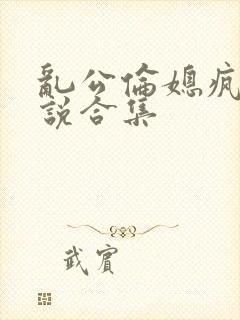 亂公倫媳瘋
說合集
武賓